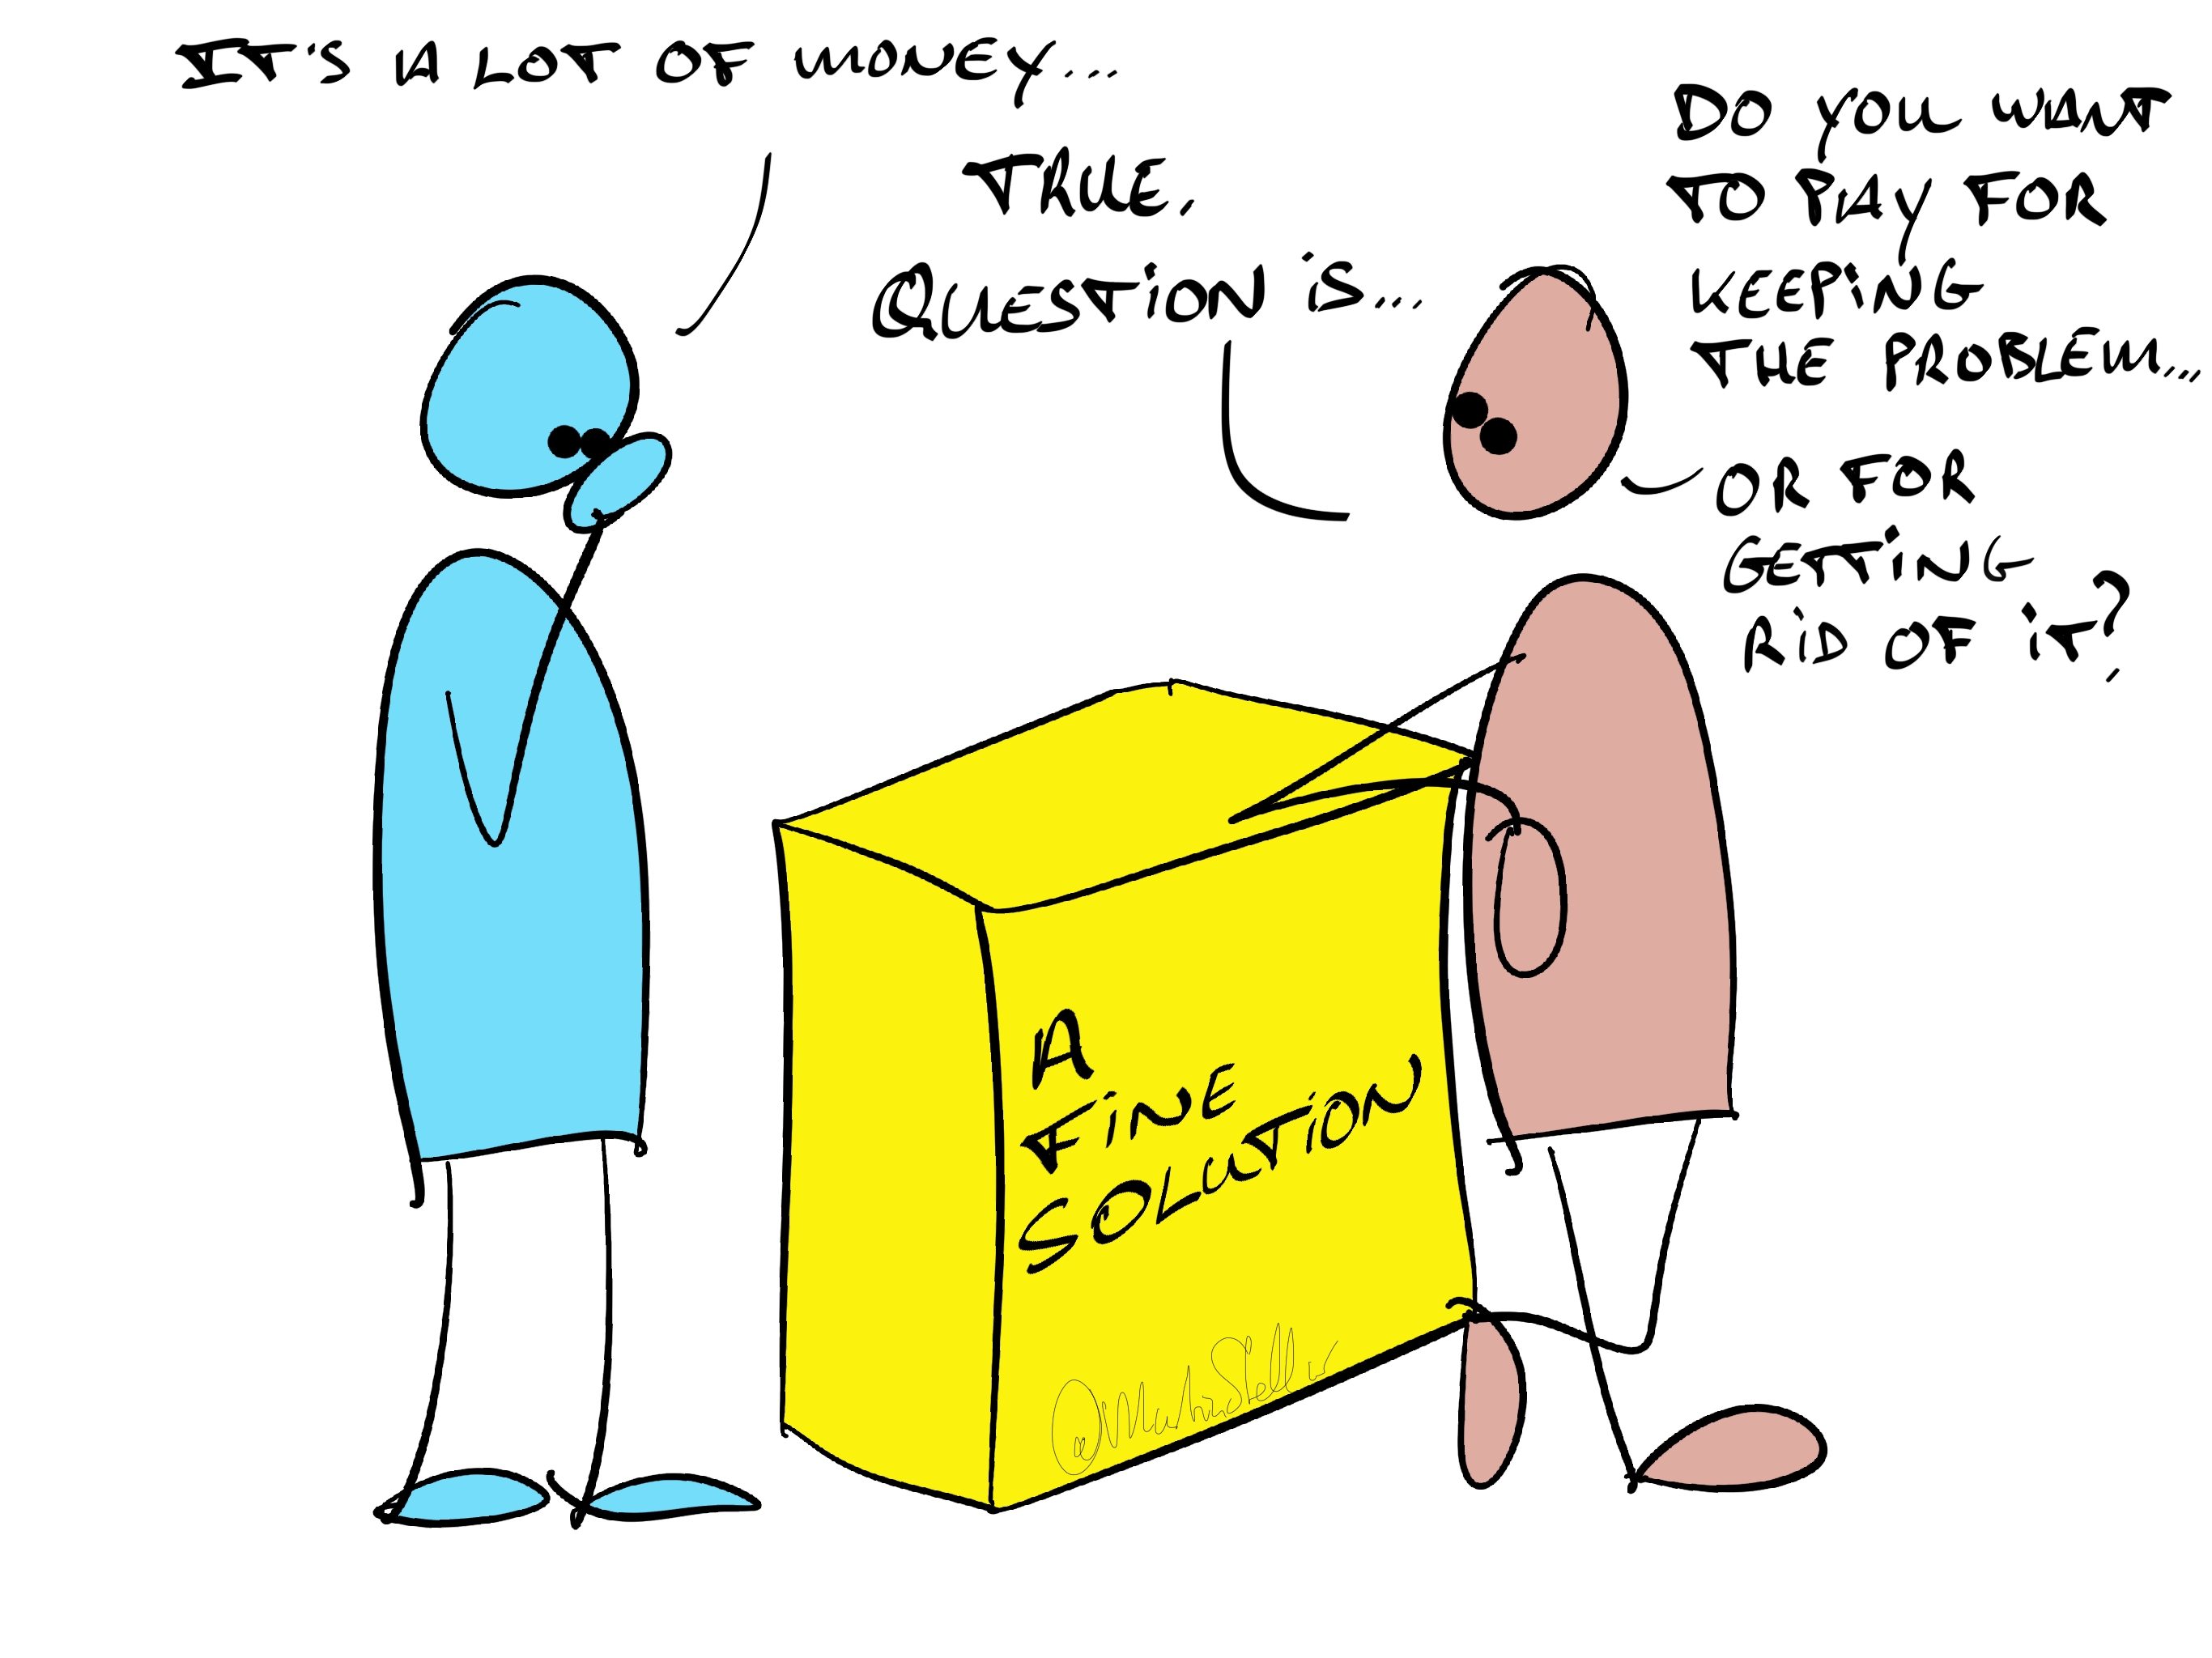 IT'S A LOT OF MONEY...
TRUE.
QUESTION IS...
DO YOU WANT
TO PAY FOR
KEEPING
THE PROBLEM...
OR FOR
GETTING
RID OF IT?
A
FINE
SOLUTION
@MartinStellar